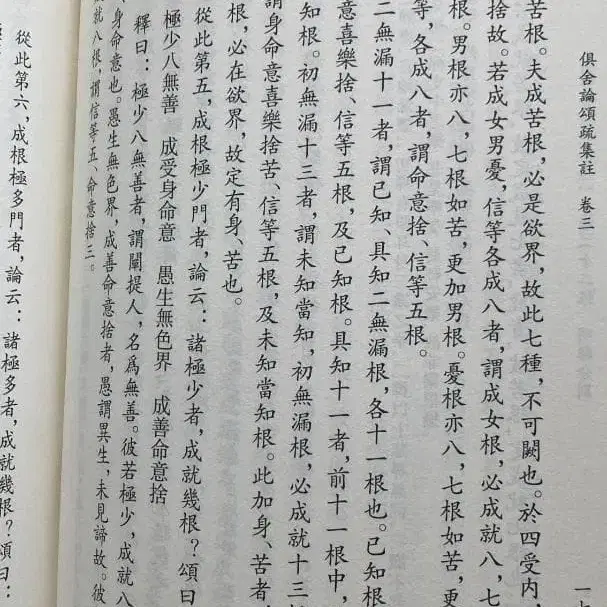 俱舍論頌疏集註 卷三
一七
苦根。夫成苦根，必是欲界，故此七種，不可闕也。於四受內
捨故。若成女男憂，信等各成八者，謂成女根，必成就八，七
根。男根亦八，七根如苦，更加男根。憂根亦八，七根如苦，更
等，各成八者，謂命意捨、信等五根。
二無漏十一者，謂已知、具知二無漏根，各十一根也。已知根
意喜樂捨、信等五根，及已知根。具知十一者，前十一根中，
知根。初無漏十三者，謂未知當知，初無漏根，必成就十三根
謂身命意喜樂捨苦、信等五根，及未知當知根。此加身、苦者，
根，必在欲界，故定有身、苦也。
從此第五，成根極少門者，論云：諸極少者，成就幾根？頌曰
極少八無善 成受身命意 愚生無色界 成善命意捨
釋曰：極少八無善者，謂闡提人，名爲無善。彼若極少，成就八
、身命意也。愚生無色界，成善命意捨者，愚謂異生，未見諦故。彼
成就八根，謂信等五、命意捨三。
從此第六，成根極多門者，論云：諸極多者，成就幾根？頌曰：